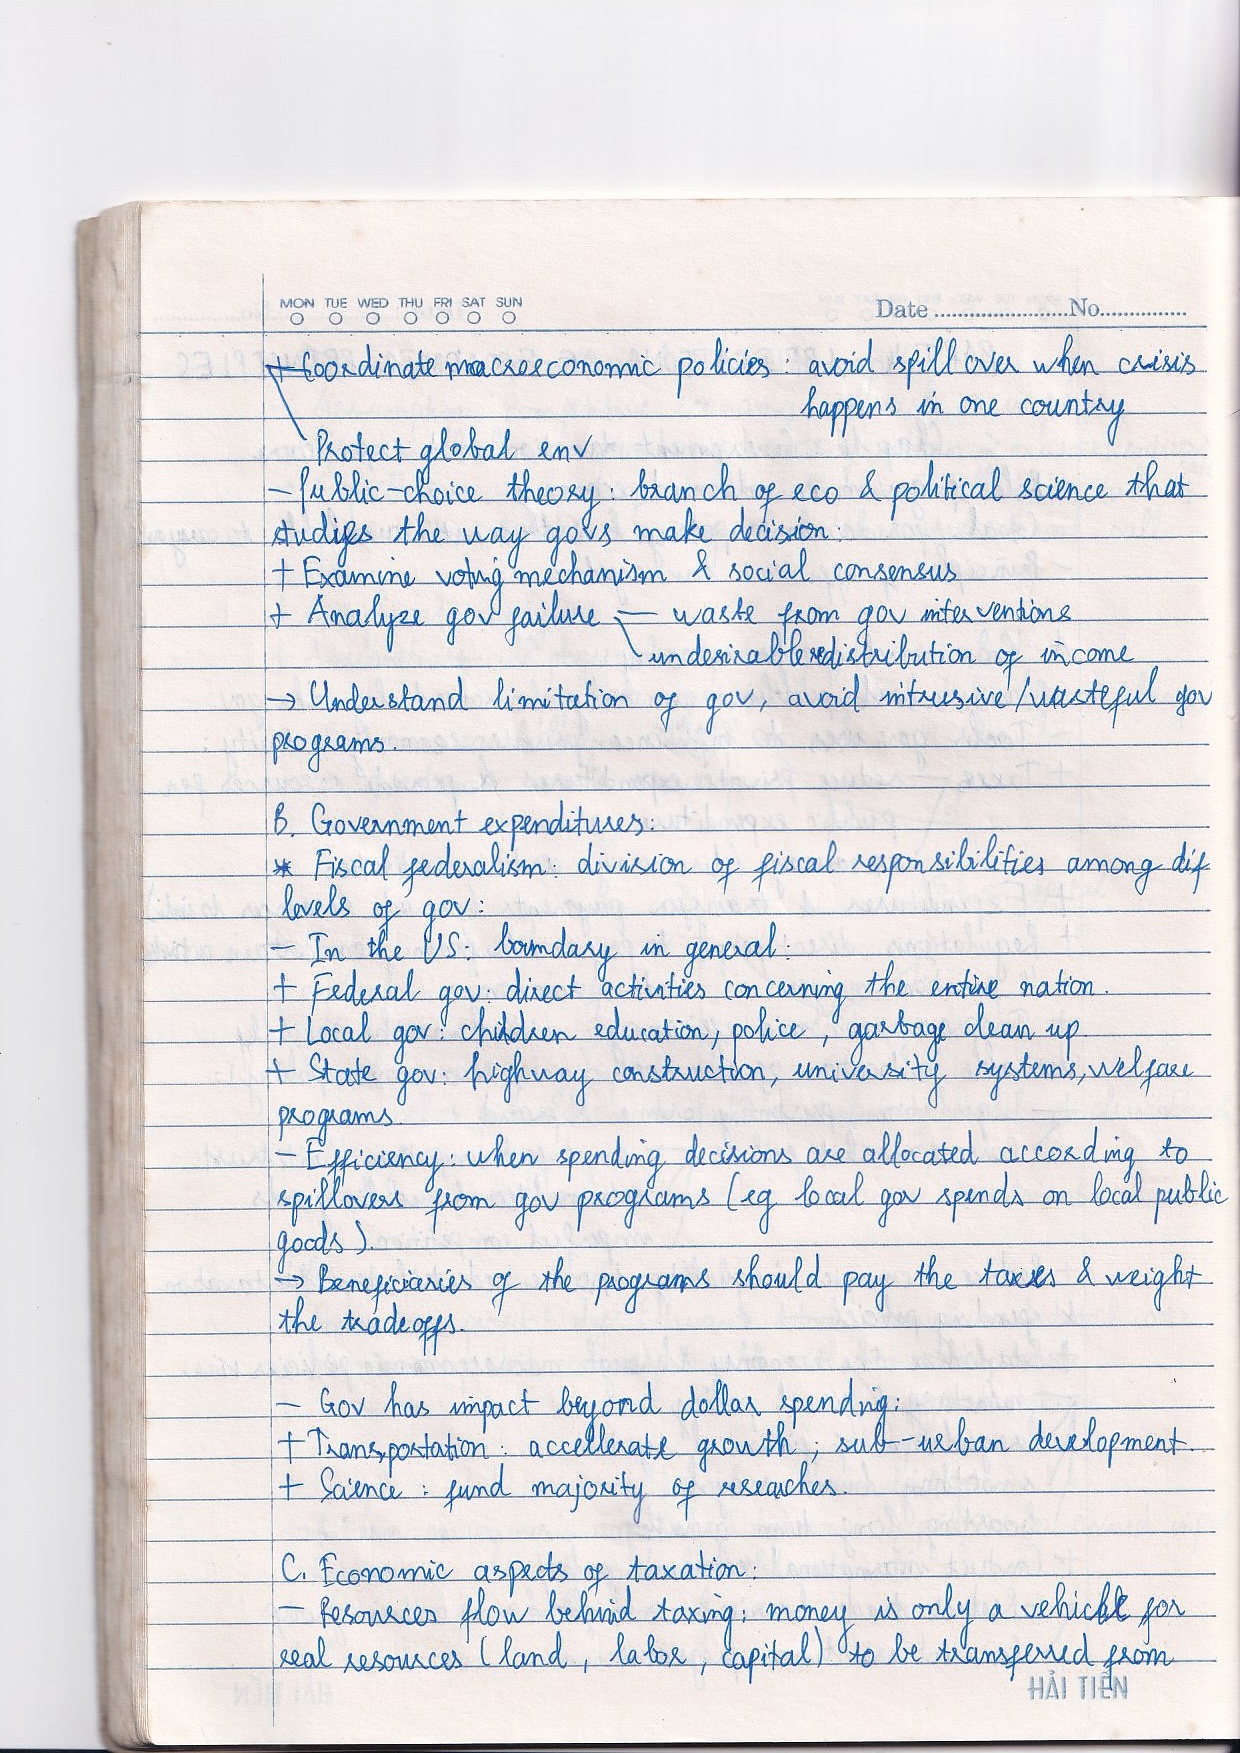 MON TUE WED THU FRI SAT SUN
Date ........................No...............
Coordinate macroeconomic policies : avoid spill over when crisis
happens in one country
Protect global env
- Public-choice theory : branch of eco & political science that
studies the way govs make decision:
+ Examine voting mechanism & social consensus
+ Analyze gov failure — waste from gov interventions
undesirable redistribution of income
→ Understand limitation of gov, avoid intrusive/wasteful gov
programs.
B. Government expenditures:
* Fiscal federalism : division of fiscal responsibilities among dif
levels of gov :
- In the US : boundary in general :
+ Federal gov : direct activities concerning the entire nation.
+ Local gov : children education, police, garbage clean up
+ State gov : highway construction, university systems, welfare
programs.
- Efficiency : when spending decisions are allocated according to
spillovers from gov programs (eg local gov spends on local public
goods).
→ Beneficiaries of the programs should pay the taxes & weight
the tradeoffs.
- Gov has impact beyond dollar spending :
+ Transportation : accellerate growth ; sub-urban development.
+ Science : fund majority of researches.
C. Economic aspects of taxation :
- Resources flow behind taxing : money is only a vehicle for
real resources (land, labor, capital) to be transferred from
HẢI TIẾN